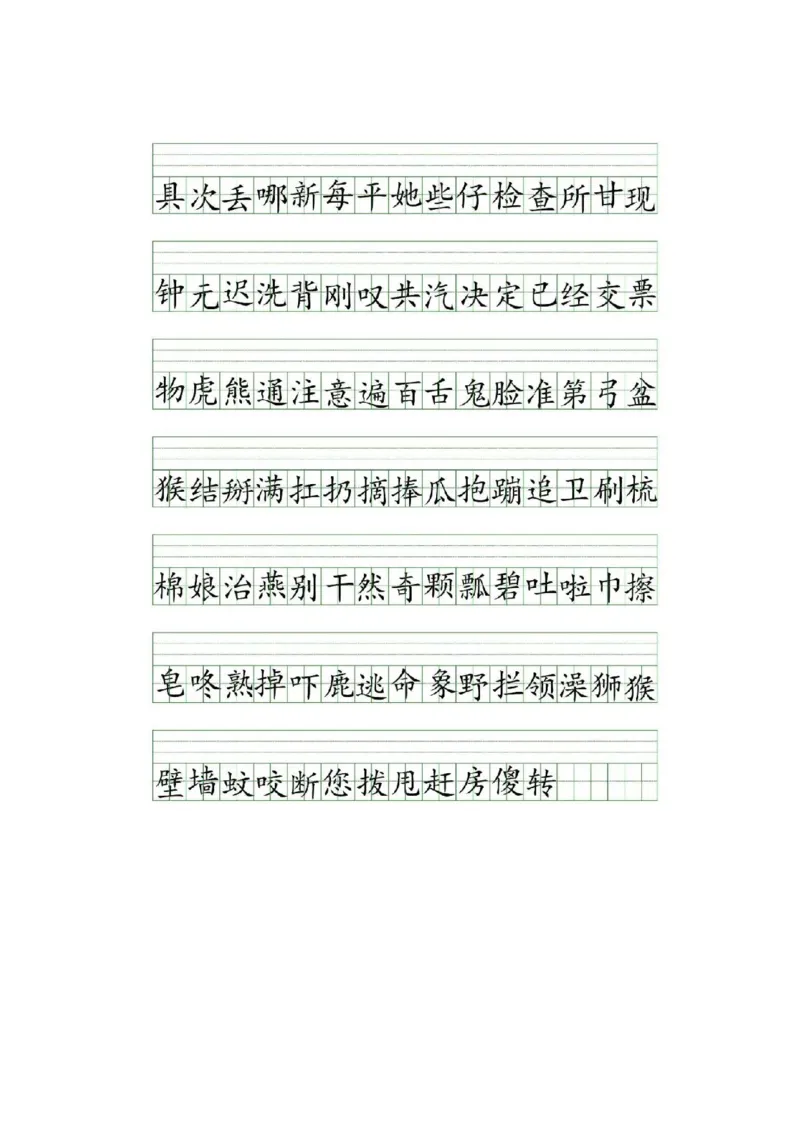 具次丢哪新每平她些仔检查所甘现
钟元迟洗背刚叹共汽决定已经交票
物虎熊通注意遍百舌鬼脸准第弓盆
猴结掰满扛扔摘捧瓜抱蹦追卫刷梳
棉娘治燕别干然奇颗瓢碧吐啦巾擦
皂咚熟掉吓鹿逃命象野拦领澡狮猴
壁墙蚊咬断您拨甩赶房傻转